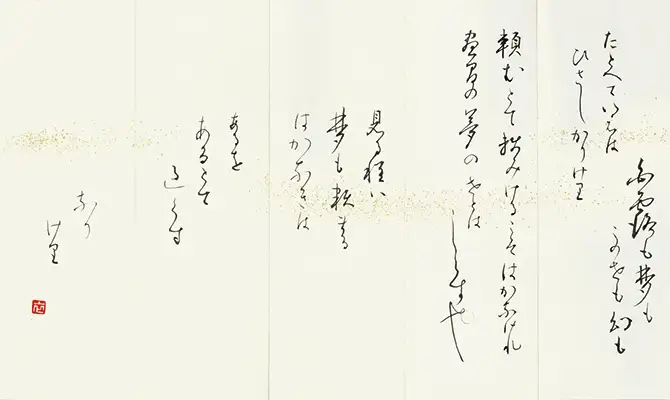 白露も夢も
このよも幻も
たとへていへは
ひさしかりけり
頼むとて頼みけるこそはかなけれ
昼間の夢のよとはしらすや
見る程は
夢も頼まる
はかなきは
あるを
あるとて
過くす
なり
けり